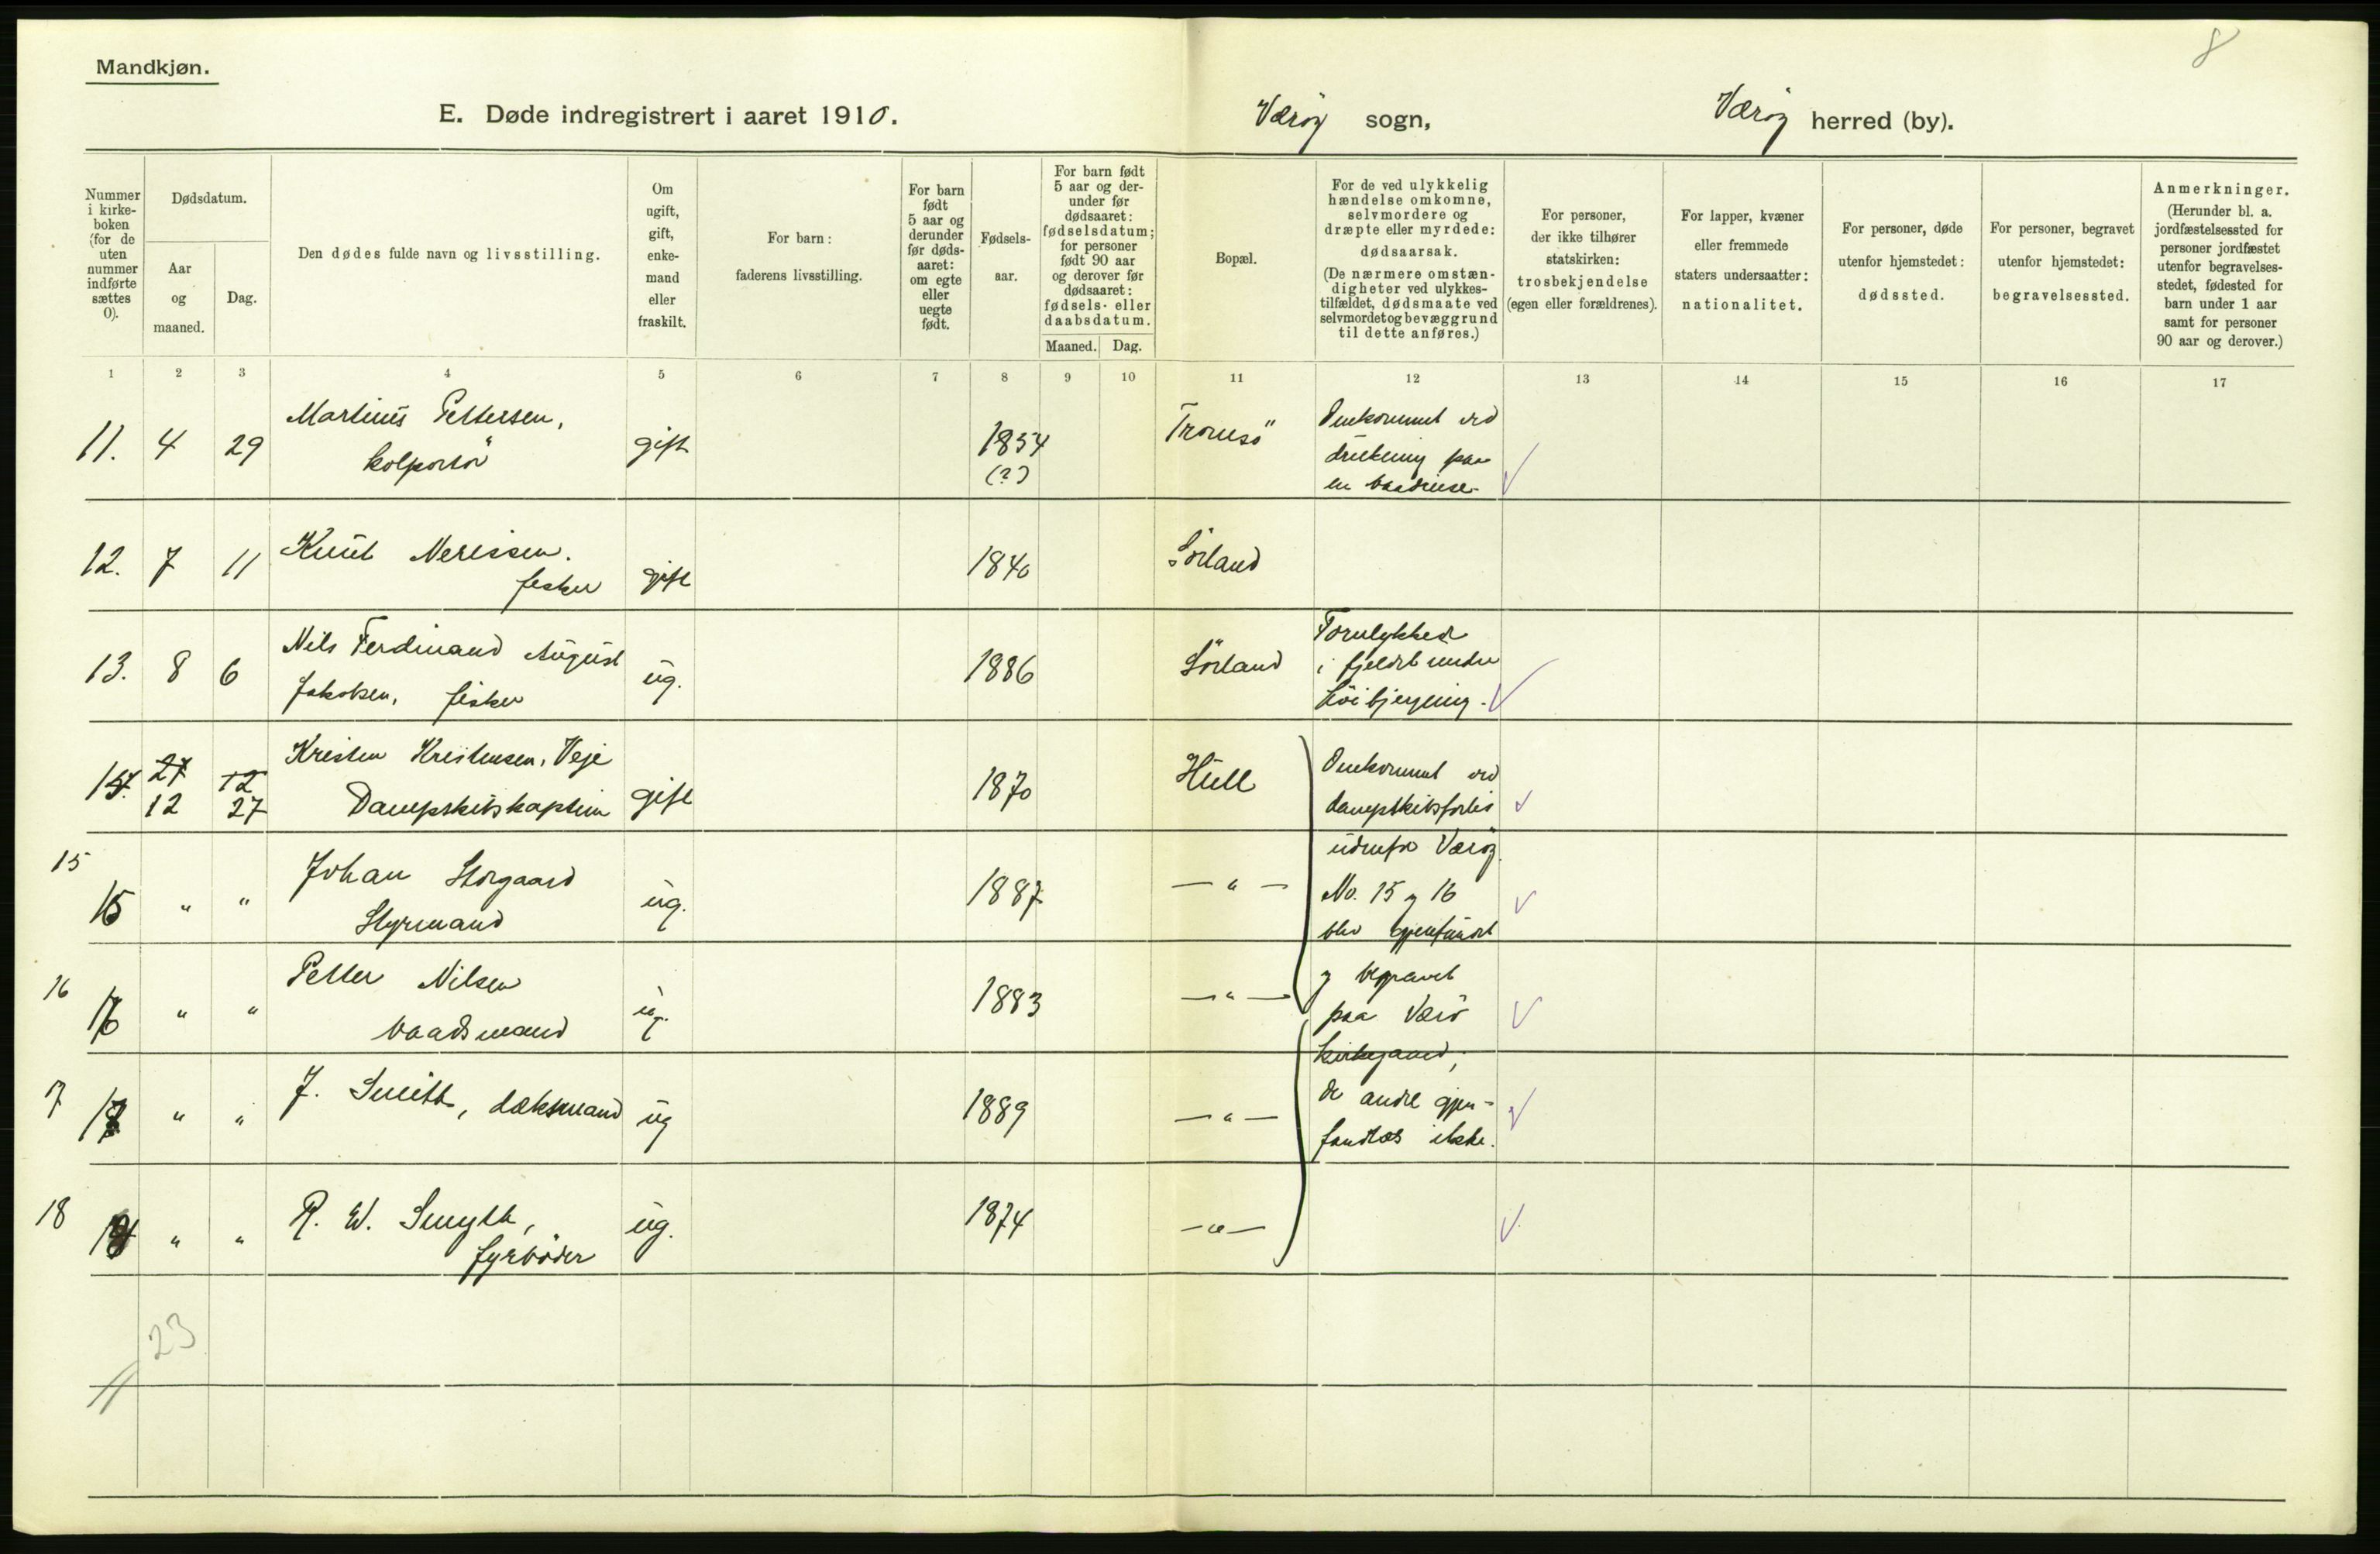 8
Mandkjøn.
E. Døde indregistrert i aaret 1910.
Værøy sogn,
Værøy herred (by).
Nummer i kirke-boken (for de uten nummer indførte sættes 0).
Dødsdatum.
Aar og maaned.
Dag.
Den dødes fulde navn og livsstilling.
Om ugift, gift, enke-mand eller fraskilt.
For barn: faderens livsstilling.
For barn født 5 aar og derunder før døds-aaret: om egte eller uegte født.
Fødsels-aar.
For barn født 5 aar og der-under før dødsaaret: fødselsdatum; for personer født 90 aar og derover før dødsaaret: fødsels- eller daabsdatum.
Maaned. Dag.
Bopæl.
For de ved ulykkelig hændelse omkomne, selvmordere og dræpte eller myrdede: dødsaarsak.
(De nærmere omstæn-digheter ved ulykkes-tilfældet, dødsmaate ved selvmordet og bevæggrund til dette anføres.)
For personer, der ikke tilhører statskirken: trosbekjendelse (egen eller forældrenes).
For lapper, kvæner eller fremmede staters undersaatter: nationalitet.
For personer, døde utenfor hjemstedet: dødssted.
For personer, begravet utenfor hjemstedet: begravelsessted.
Anmerkninger.
(Herunder bl. a. jordfæstelsessted for personer jordfæstet utenfor begravelses-stedet, fødested for barn under 1 aar samt for personer 90 aar og derover.)
1 2 3 4 5 6 7 8 9 10 11 12 13 14 15 16 17
11. 4 29 Martinus Pettersen, kolportör gift 1854 (?) Tromsö Omkommet ved drukning paa en baadreise.
12. 7 11 Knut fisker gift 1840 Sörland
13. 8 6 Nils Ferdinand August Jakobsen, fisker ug. 1886 Sörland Forulykket i fjeldet under höibjergning.
14. 27 12 12 27 Kristen Kristensen, Veje Dampskibskaptein gift 1870 Hull Omkommet ved dampskibsforlis udenfor Værøy.
15 " " Johan Storgaard Styrmand ug. 1887 — " — No. 15 og 16 blev gjenfundet
16 " " Petter Nilsen baadsmand ug. 1883 — " — og begravet paa Værö kirkegaard,
17 " " J. Smith, dæksmand ug 1889 — " — de andre gjen-fandtes ikke.
18 " " R. W. Smyth, fyrböder ug. 1874 — " —
23